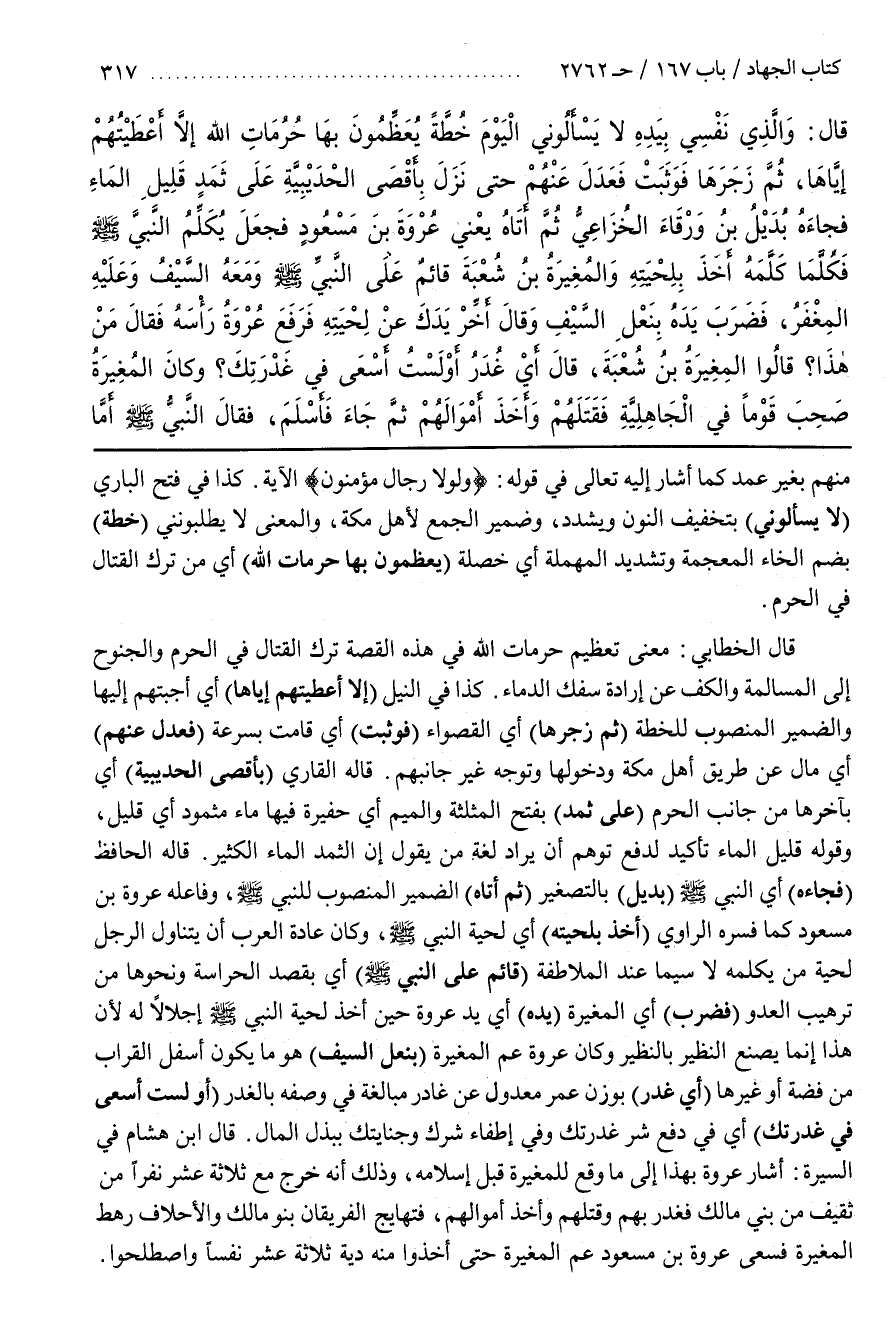 كتاب الجهاد / باب ١٦٧ / حـ ٢٧٦٢ ............................................ ٣١٧
قال: وَالَّذِي نَفْسِي بِيَدِهِ لا يَسْأَلُوني الْيَوْمَ خُطَّةً يُعَظِّمُونَ بِهَا حُرُمَاتِ الله إلَّا أَعْطَيْتُهُمْ
إيَّاهَا، ثُمَّ زَجَرَهَا فَوَثَبَتْ فَعَدَلَ عَنْهُمْ حتى نَزَلَ بِأَقْصَى الحُدَيْبِيَّةِ عَلَى ثَمَدٍ قَلِيلِ المَاءِ
فجاءَهُ بُدَيْلُ بنُ وَرْقَاءَ الخُزَاعِيُّ ثُمَّ أَتَاهُ يعْني عُرْوَةَ بنَ مَسْعُودٍ فجعَلَ يُكَلِّمُ النَّبيَّ ﷺ
فَكُلَّمَا كَلَّمَهُ أَخَذَ بِلِحْيَتِهِ وَالمُغِيرَةُ بنُ شُعْبَةَ قائمٌ عَلَى النَّبيِّ ﷺ وَمَعَهُ السَّيْفُ وَعَلَيْهِ
المِغْفَرُ، فَضَرَبَ يَدَهُ بِنَعْلِ السَّيْفِ وَقالَ أَخِّرْ يَدَكَ عنْ لِحْيَتِهِ فَرَفَعَ عُرْوَةُ رَأْسَهُ فَقالَ مَنْ
هٰذَا؟ قالُوا المِغِيرَةُ بنُ شُعْبَةَ، قالَ أَيْ غُدَرُ أَوَلَسْتُ أَسْعَى في غَدْرَتِكَ؟ وكانَ المُغِيرَةُ
صَحِبَ قَوْماً في الْجَاهِلِيَّةِ فَقَتَلَهُمْ وَأَخَذَ أَمْوَالَهُمْ ثمَّ جَاءَ فَأَسْلَمَ، فقالَ النَّبيُّ ﷺ أَمَّا
منهم بغير عمد كما أشار إليه تعالى في قوله: ﴿ولولا رجال مؤمنون﴾ الآية. كذا في فتح الباري
(لا يسألوني) بتخفيف النون ويشدد، وضمير الجمع لأهل مكة، والمعنى لا يطلبونني (خطة)
بضم الخاء المعجمة وتشديد المهملة أي خصلة (يعظمون بها حرمات الله) أي من ترك القتال
في الحرم.
قال الخطابي: معنى تعظيم حرمات الله في هذه القصة ترك القتال في الحرم والجنوح
إلى المسالمة والكف عن إرادة سفك الدماء. كذا في النيل (إلا أعطيتهم إياها) أي أجبتهم إليها
والضمير المنصوب للخطة (ثم زجرها) أي القصواء (فوثبت) أي قامت بسرعة (فعدل عنهم)
أي مال عن طريق أهل مكة ودخولها وتوجه غير جانبهم. قاله القاري (بأقصى الحديبية) أي
بآخرها من جانب الحرم (على ثمد) بفتح المثلثة والميم أي حفيرة فيها ماء مثمود أي قليل،
وقوله قليل الماء تأكيد لدفع توهم أن يراد لغة من يقول إن الثمد الماء الكثير. قاله الحافظ
(فجاءه) أي النبي ﷺ (بديل) بالتصغير (ثم أتاه) الضمير المنصوب للنبي ﷺ، وفاعله عروة بن
مسعود كما فسره الراوي (أخذ بلحيته) أي لحية النبي ﷺ، وكان عادة العرب أن يتناول الرجل
لحية من يكلمه لا سيما عند الملاطفة (قائم على النبي ﷺ) أي بقصد الحراسة ونحوها من
ترهيب العدو (فضرب) أي المغيرة (يده) أي يد عروة حين أخذ لحية النبي ﷺ إجلالاً له لأن
هذا إنما يصنع النظير بالنظير وكان عروة عم المغيرة (بنعل السيف) هو ما يكون أسفل القراب
من فضة أو غيرها (أي غدر) بوزن عمر معدول عن غادر مبالغة في وصفه بالغدر (أو لست أسعى
في غدرتك) أي في دفع شر غدرتك وفي إطفاء شرك وجنايتك ببذل المال. قال ابن هشام في
السيرة: أشار عروة بهذا إلى ما وقع للمغيرة قبل إسلامه، وذلك أنه خرج مع ثلاثة عشر نفراً من
ثقيف من بني مالك فغدر بهم وقتلهم وأخذ أموالهم، فتهايج الفريقان بنو مالك والأحلاف رهط
المغيرة فسعى عروة بن مسعود عم المغيرة حتى أخذوا منه دية ثلاثة عشر نفساً واصطلحوا.